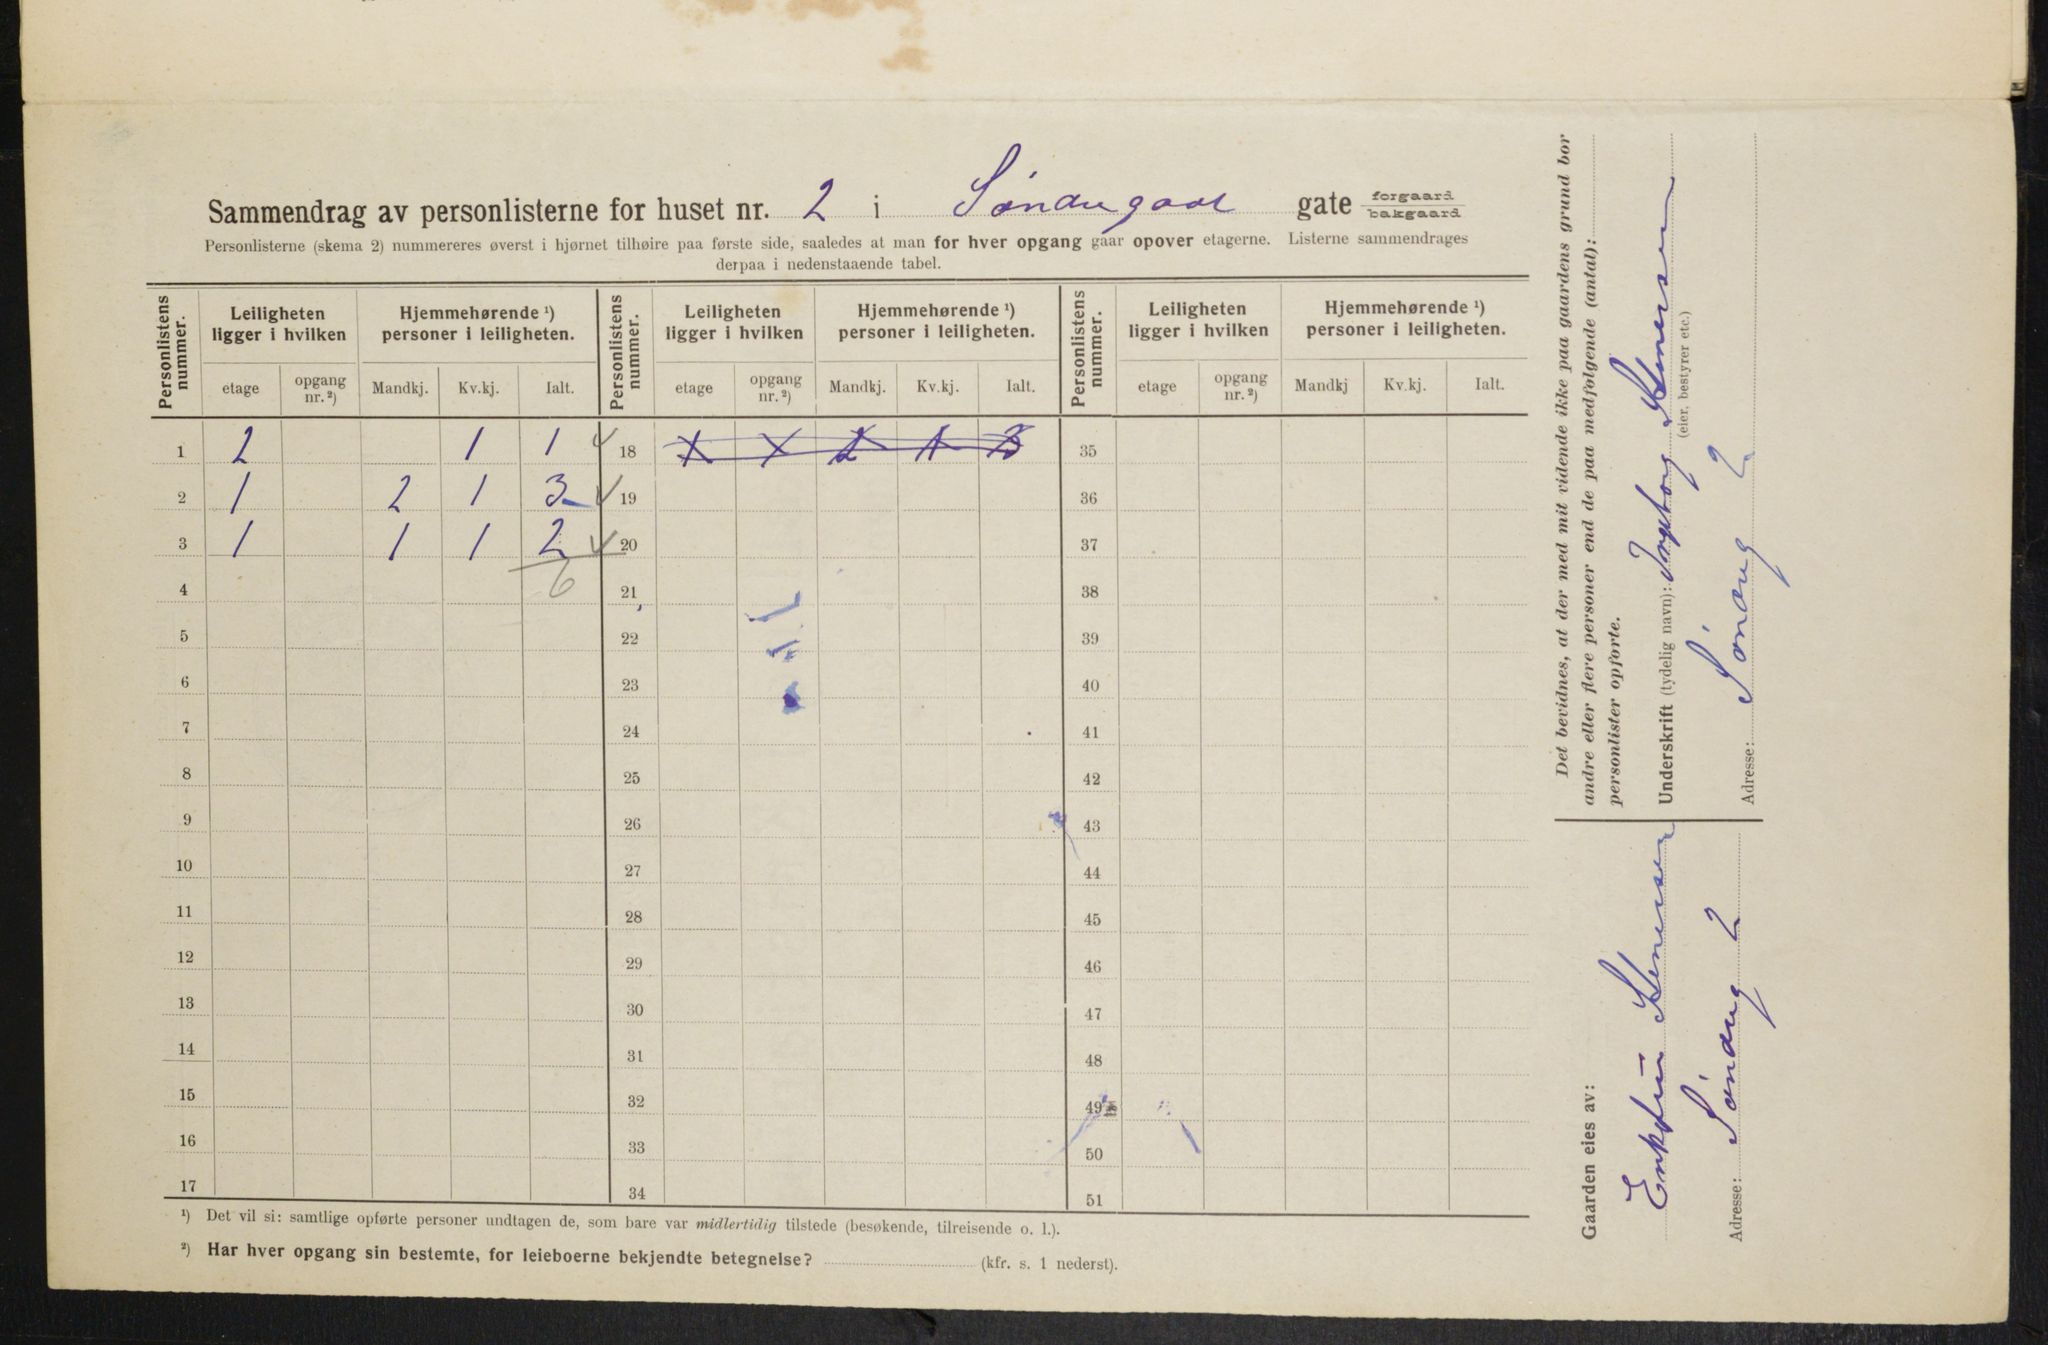 Sammendrag av personlisterne for huset nr. 2 i Søndergade gate forgaard bakgaard
Personlisterne (skema 2) nummereres øverst i hjørnet tilhøire paa første side, saaledes at man for hver opgang gaar opover etagerne. Listerne sammendrages
derpaa i nedenstaaende tabel.
Personlistens nummer. Leiligheten ligger i hvilken Hjemmehørende ¹) personer i leiligheten. Personlistens nummer. Leiligheten ligger i hvilken Hjemmehørende ¹) personer i leiligheten. Personlistens nummer. Leiligheten ligger i hvilken Hjemmehørende ¹) personer i leiligheten.
etage opgang nr. ²) Mandkj. Kv.kj. Ialt. etage opgang nr. ²) Mandkj. Kv.kj. Ialt. etage opgang nr. ²) Mandkj Kv.kj. Ialt.
1 2 1 1 18 1 1 3 35
2 1 2 1 3 19 36
3 1 1 1 2 20 37
4 6 21 38
5 22 39
6 23 40
7 24 41
8 25 42
9 26 43
10 27 44
11 28 45
12 29 46
13 30 47
14 31 48
15 32 49
16 33 50
17 34 51
¹) Det vil si: samtlige opførte personer undtagen de, som bare var midlertidig tilstede (besøkende, tilreisende o. l.).
²) Har hver opgang sin bestemte, for leieboerne bekjendte betegnelse? (kfr. s. 1 nederst).
Det bevidnes, at der med mit vidende ikke paa gaardens grund bor
andre eller flere personer end de paa medfølgende (antal):
personlister opførte.
Underskrift (tydelig navn): Ingeborg Stenersen
(eier, bestyrer etc.)
Adresse: Sönderg 2
Gaarden eies av:
Enkefru Stenersen
Adresse: Sönderg 2